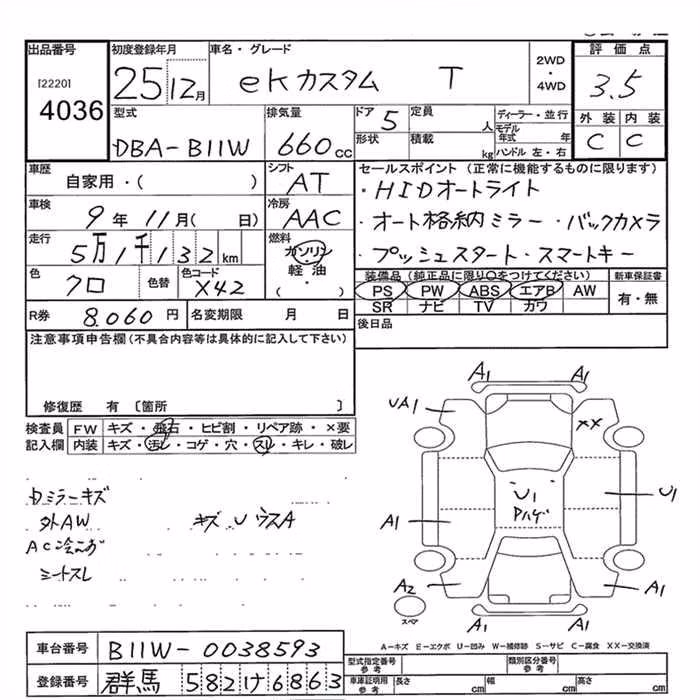 出品番号
[2220]
4036
初度登録年月
25 12月
車名・グレード
eKカスタム T
2WD
・
4WD
評価点
3.5
外装 内装
C C
型式
DBA-B11W
排気量
660cc
ドア 5
定員 人
形状
積載 kg
ディーラー・並行
モデル年式 年
ハンドル 左・右
車歴
自家用・( )
シフト
AT
セールスポイント (正常に機能するものに限ります)
・HIDオートライト
・オート格納ミラー・バックカメラ
・プッシュスタート・スマートキー
車検
9年 11月( 日)
冷房
AAC
走行
5万1千132km
燃料
ガソリン
・
軽油
・
( )
色
クロ
色替
色コード
X42
装備品 (純正品に限り○をつけてください)
PS PW ABS エアB AW
SR ナビ TV カワ
新車保証書
有・無
R券 8.060円
名変期限 月 日
後日品
注意事項申告欄(不具合内容等は具体的に記入して下さい)
修復歴 有 〔箇所 〕
検査員
記入欄
FW キズ・飛石・ヒビ割・リペア跡・×要
内装 キズ・汚レ・コゲ・穴・スレ・キレ・破レ
ミラーキズ
外AW キズ U ウスA
シートスレ
A1 A1
UA1
XX
U1
Pハゲ
U1
A1
A2
A1
A1 A1
スペア
A-キズ E-エクボ U-凹み W-補修跡 S-サビ C-腐食 XX-交換済
車台番号 B11W-0038593
登録番号 群馬 582け6863
型式指定番号
参考
類別区分番号
参考
車庫証明用
参考
長さ cm
幅 cm
高さ cm